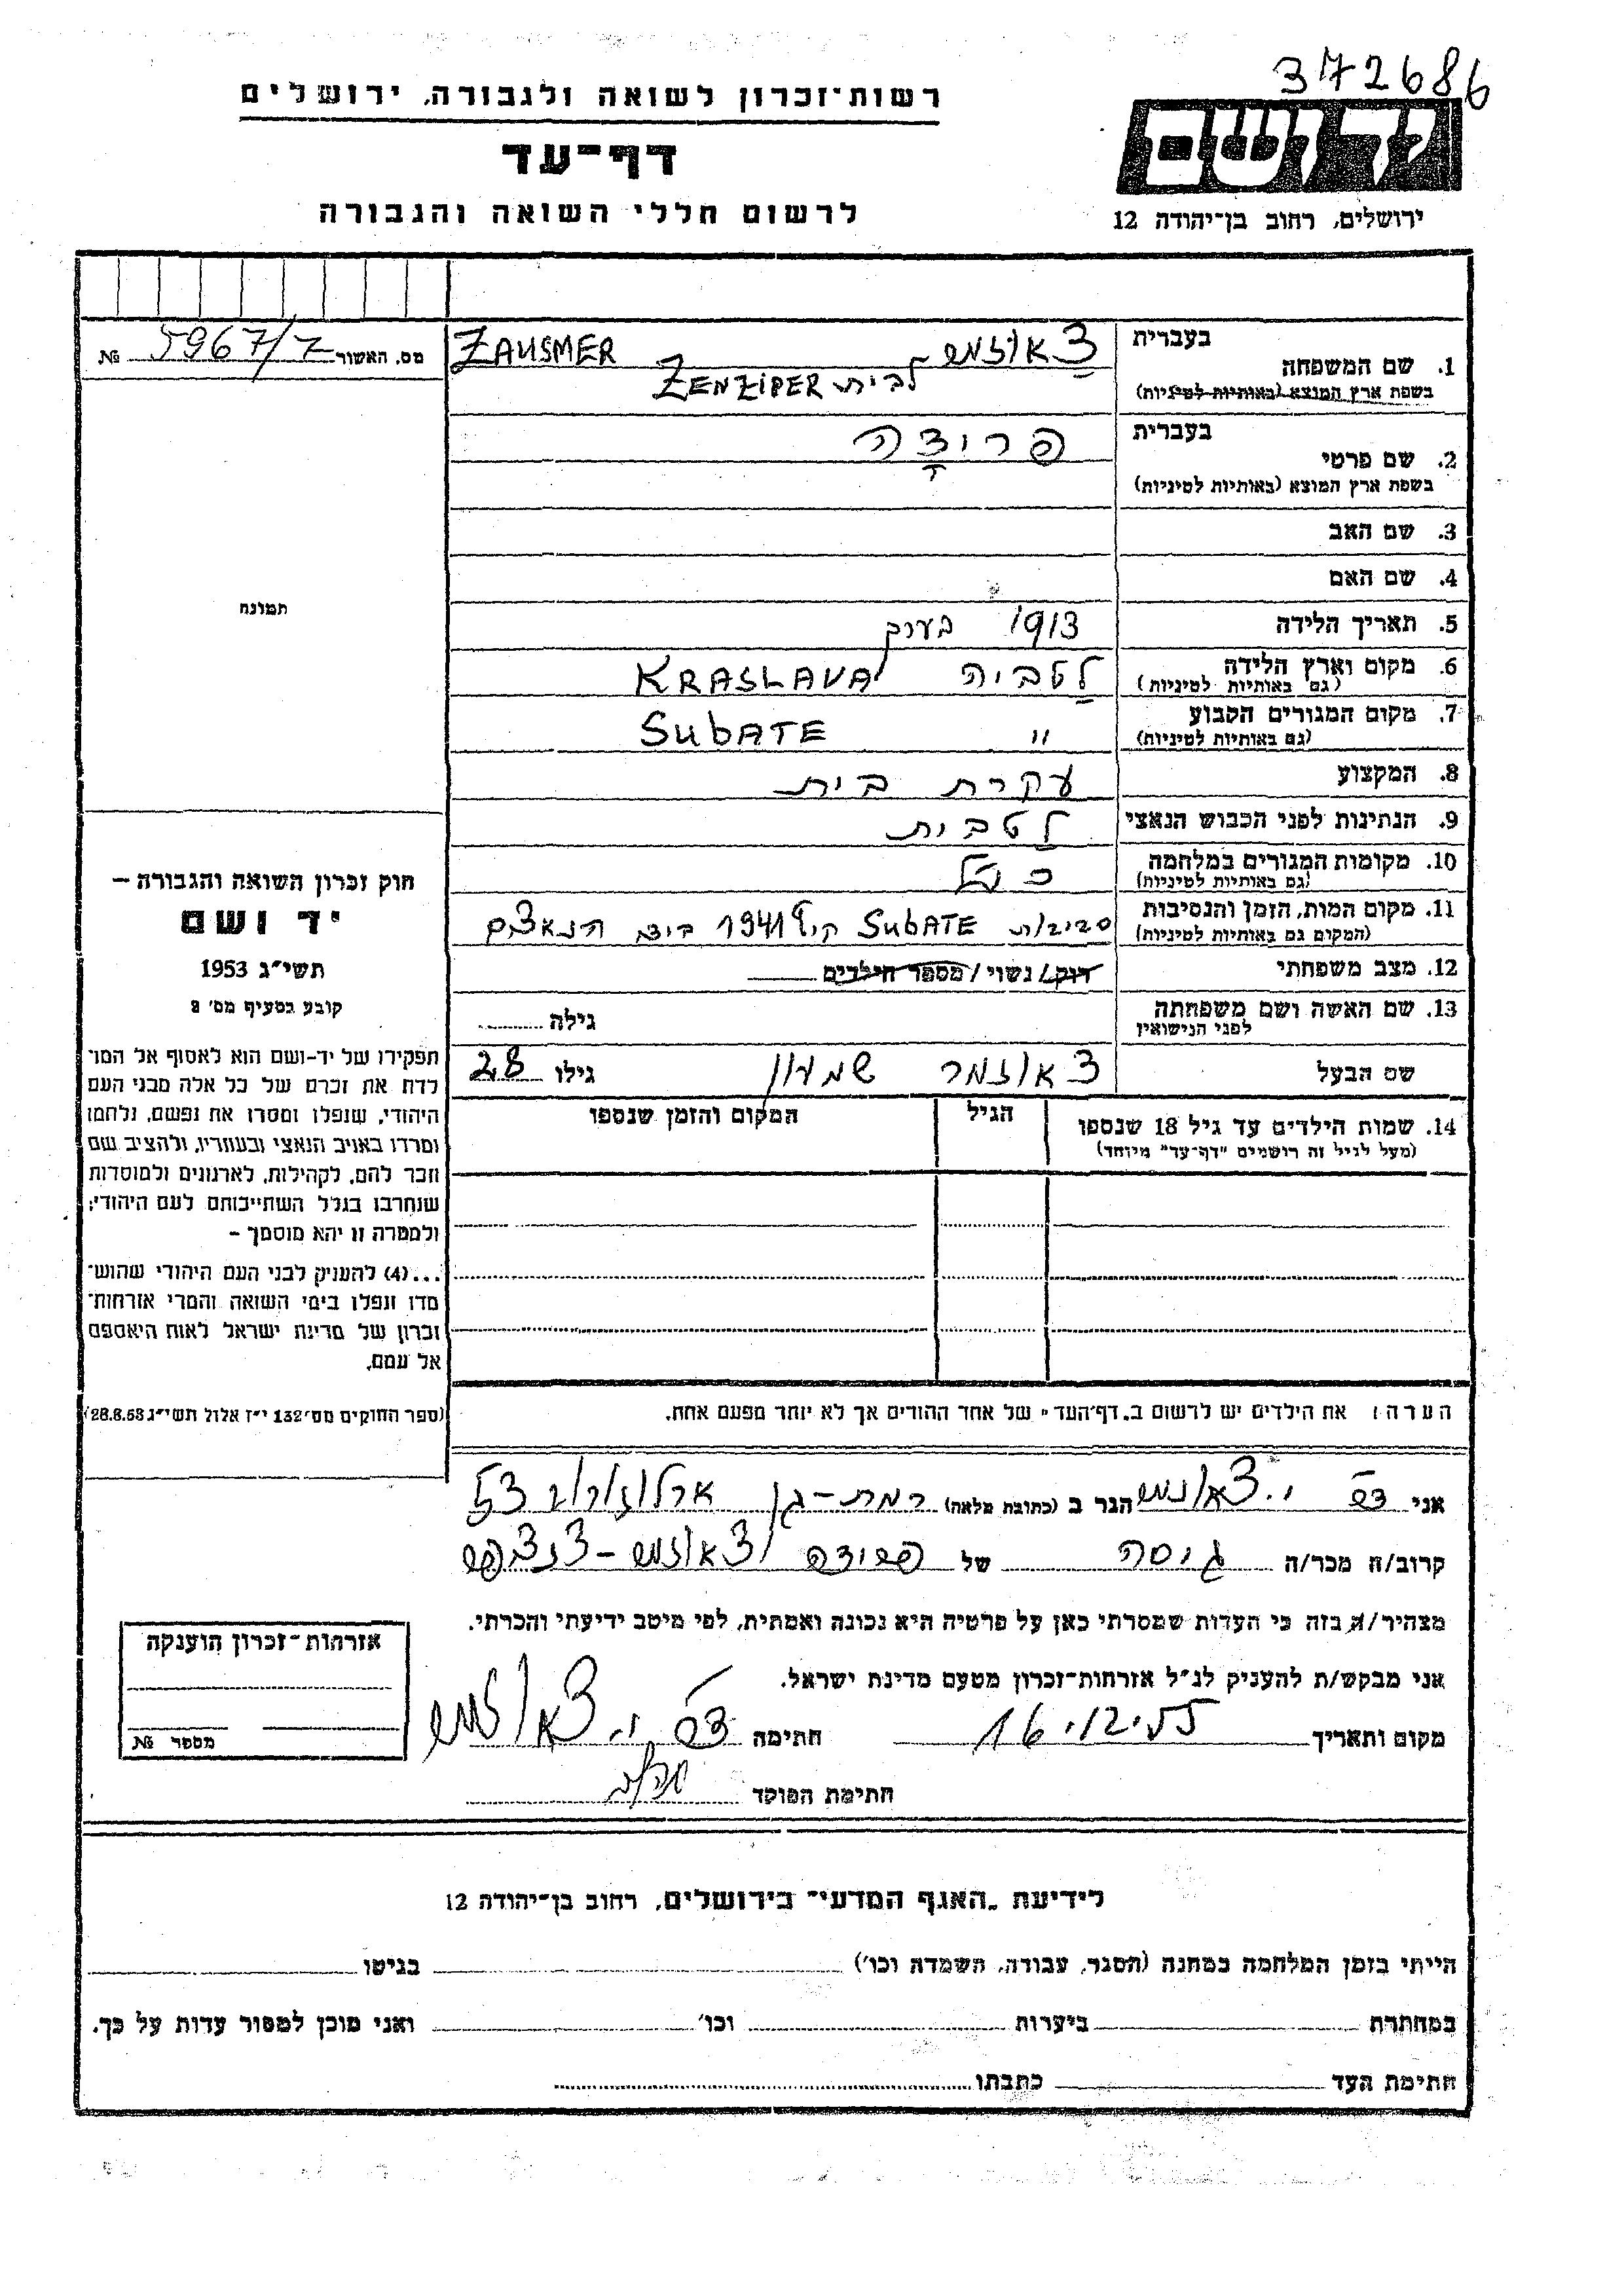 372686
רשות־זכרון לשואה ולגבורה, ירושלים
דף־עד
לרשום חללי השואה והגבורה
יד ושם
ירושלים, רחוב בן־יהודה 12
מס. האשור 5967/7 №
תמונה
חוק זכרון השואה והגבורה –
יד ושם
תשי״ג 1953
קובע בסעיף מס׳ 2
תפקידו של יד-ושם הוא לאסוף אל המו־
לדת את זכרם של כל אלה מבני העם
היהודי, שנפלו ומסרו את נפשם, נלחמו
ומרדו באויב הנאצי ובעוזריו, ולהציב שם
וזכר להם, לקהילות, לארגונים ולמוסדות
שנחרבו בגלל השתייכותם לעם היהודי;
ולמטרה זו יהא מוסמך –
...(4) להעניק לבני העם היהודי שהוש־
מדו ונפלו בימי השואה והמרי אזרחות־
זכרון של מדינת ישראל לאות היאספם
אל עמם.
(ספר החוקים מס׳ 132 י״ז אלול תשי״ג 28.8.53)
בעברית
1. שם המשפחה צאוזמר ZAUSMER
בשפת ארץ המוצא (באותיות לטיניות) לבית ZENZIPER
בעברית
2. שם פרטי פרידה
בשפת ארץ המוצא (באותיות לטיניות)
3. שם האב
4. שם האם
5. תאריך הלידה 1913 בערך
6. מקום וארץ הלידה לטביה KRASLAVA
(גם באותיות לטיניות)
7. מקום המגורים הקבוע " SUBATE
(גם באותיות לטיניות)
8. המקצוע עקרת בית
9. הנתינות לפני הכבוש הנאצי לטבית
10. מקומות המגורים במלחמה כנ״ל
(גם באותיות לטיניות)
11. מקום המות, הזמן והנסיבות סביבות SUBATE קיץ 1941 ביד הנאצים
(המקום גם באותיות לטיניות)
12. מצב משפחתי רווק/ נשוי / מספר הילדים
13. שם האשה ושם משפחתה גילה
לפני הנישואין
שם הבעל צאוזמר שמעון גילו 28
14. שמות הילדים עד גיל 18 שנספו הגיל המקום והזמן שנספו
(מעל לגיל זה רושמים "דף-עד" מיוחד)
הערה: את הילדים יש לרשום ב„דף־העד" של אחד ההורים אך לא יותר מפעם אחת.
אני י. צאוזמר הגר ב (כתובת מלאה) רמת-גן ארלוזורוב 53
קרוב/ה מכר/ה גיסה של פרידה צאוזמר-צנציפר
מצהיר/ה בזה כי העדות שמסרתי כאן על פרטיה היא נכונה ואמתית, לפי מיטב ידיעתי והכרתי.
אני מבקש/ת להעניק לנ״ל אזרחות־זכרון מטעם מדינת ישראל.
מקום ותאריך 16.12.55 חתימה י. צאוזמר
חתימת הפוקד
אזרחות־זכרון הוענקה
מספר №
לידיעת „האגף המדעי״ בירושלים, רחוב בן־יהודה 12
הייתי בזמן המלחמה במחנה (הסגר, עבודה, השמדה וכו׳) בגיטו
במחתרת ביערות וכו׳ ואני מוכן למסור עדות על כך.
חתימת העד כתבתו